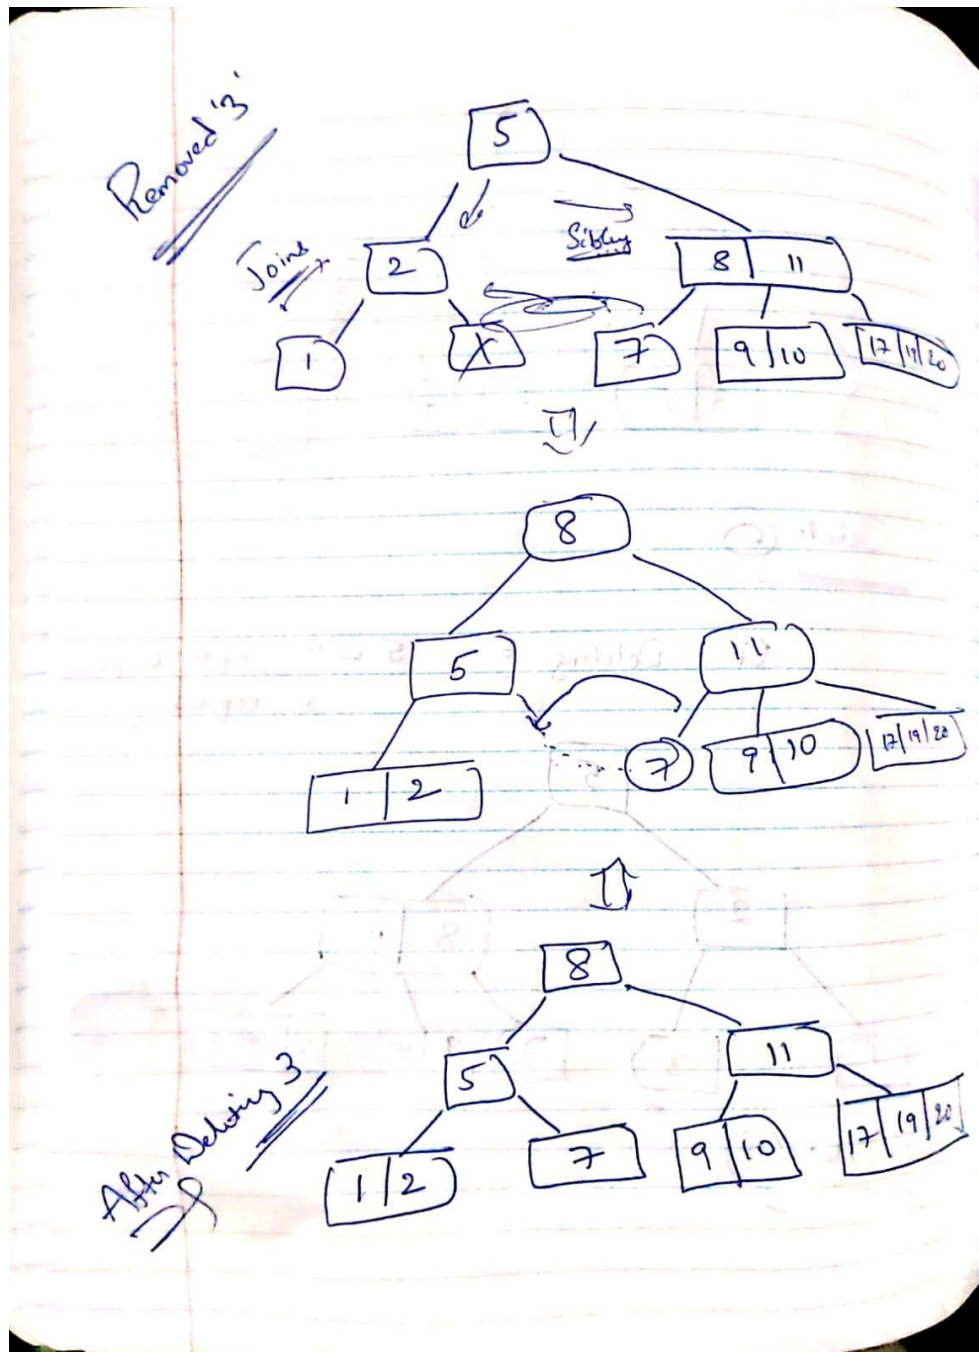 Removed '3'
5
Joins
2
Sibling
8 | 11
1
X
7
9 | 10
17 | 19 | 20
8
5
11
1 | 2
7
9 | 10
17 | 19 | 20
8
5
11
After Deleting 3
1 | 2
7
9 | 10
17 | 19 | 20